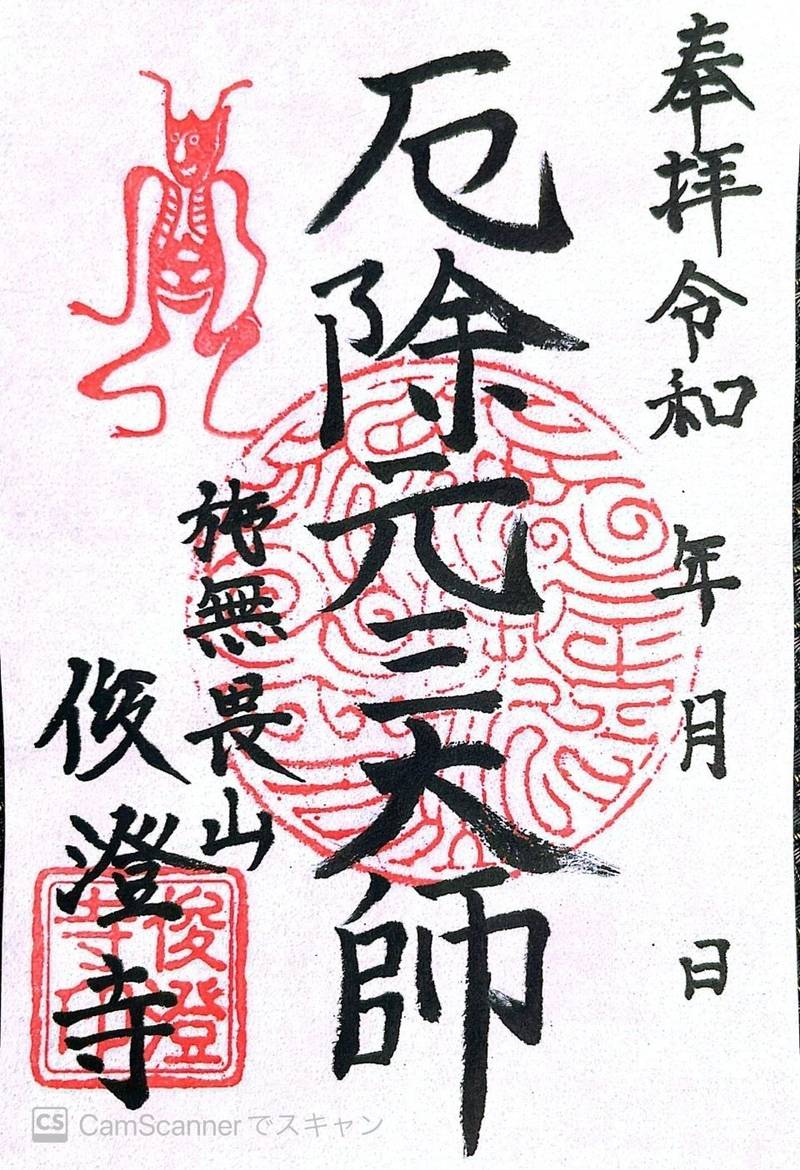 奉拝 令和 年 月 日
厄除元三大師
施無畏山
俊澄寺
俊澄
寺印
CS CamScanner でスキャン